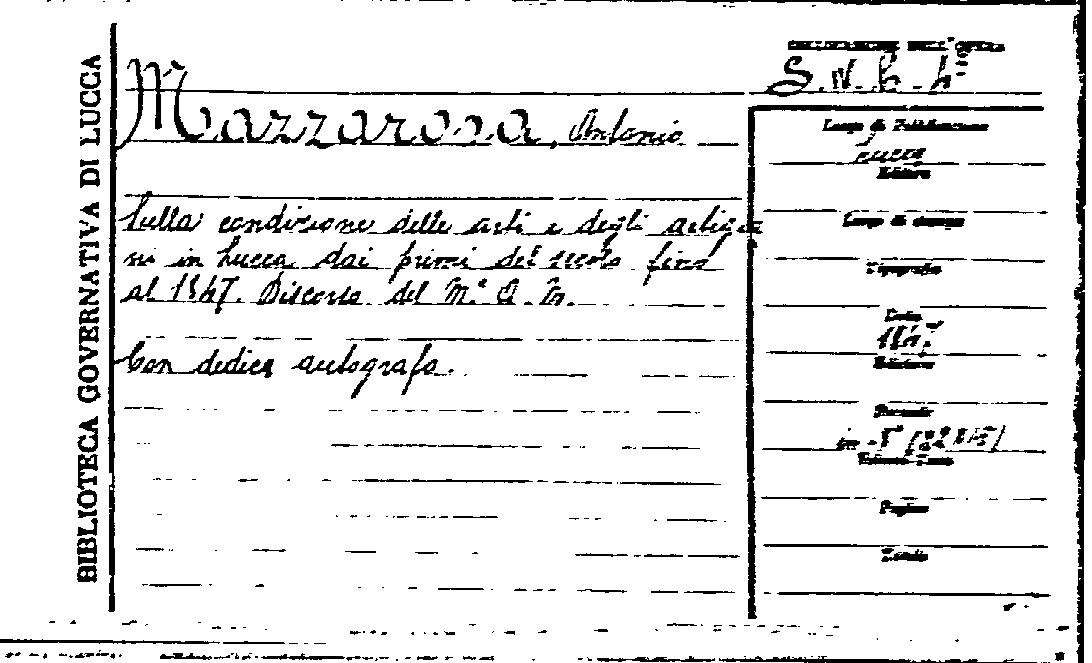 BIBLIOTECA GOVERNATIVA DI LUCCA
COLLOCAZIONE DELL'OPERA
Mazzarosa, Antonio
Sulla condizione delle arti e degli artigia
ni in Lucca dai primi del secolo fino
al 1847. Discorso del M.e A. M.
Con dedica autografa.
Luogo di Pubblicazione
Lucca
Editore
Luogo di stampa
Tipografia
Data
Edizione
Formato
in-8°
Pagine
Tavole